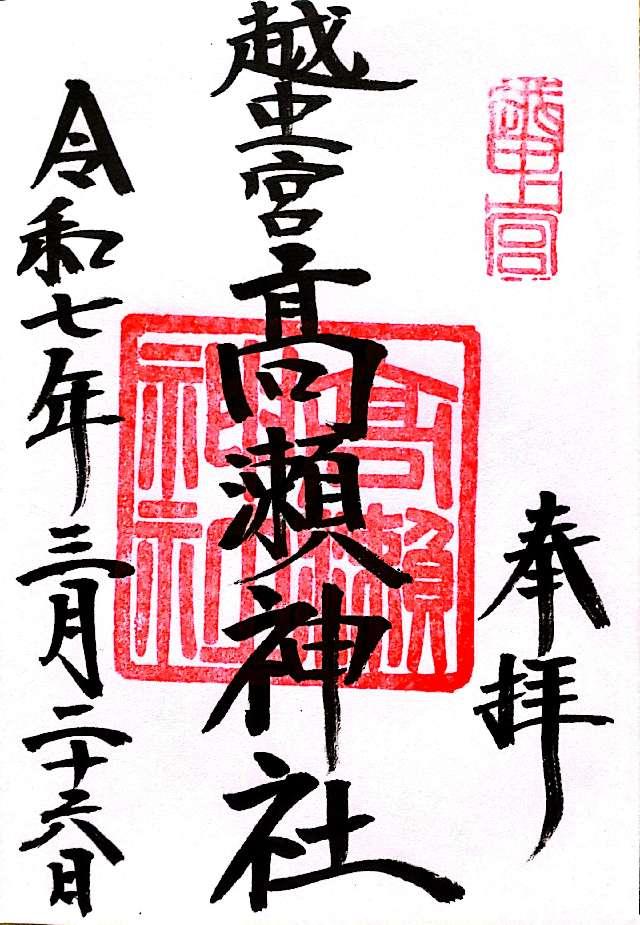 越中一宮
奉拝
越中一宮髙瀬神社
高瀬
神社
令和七年三月二十六日